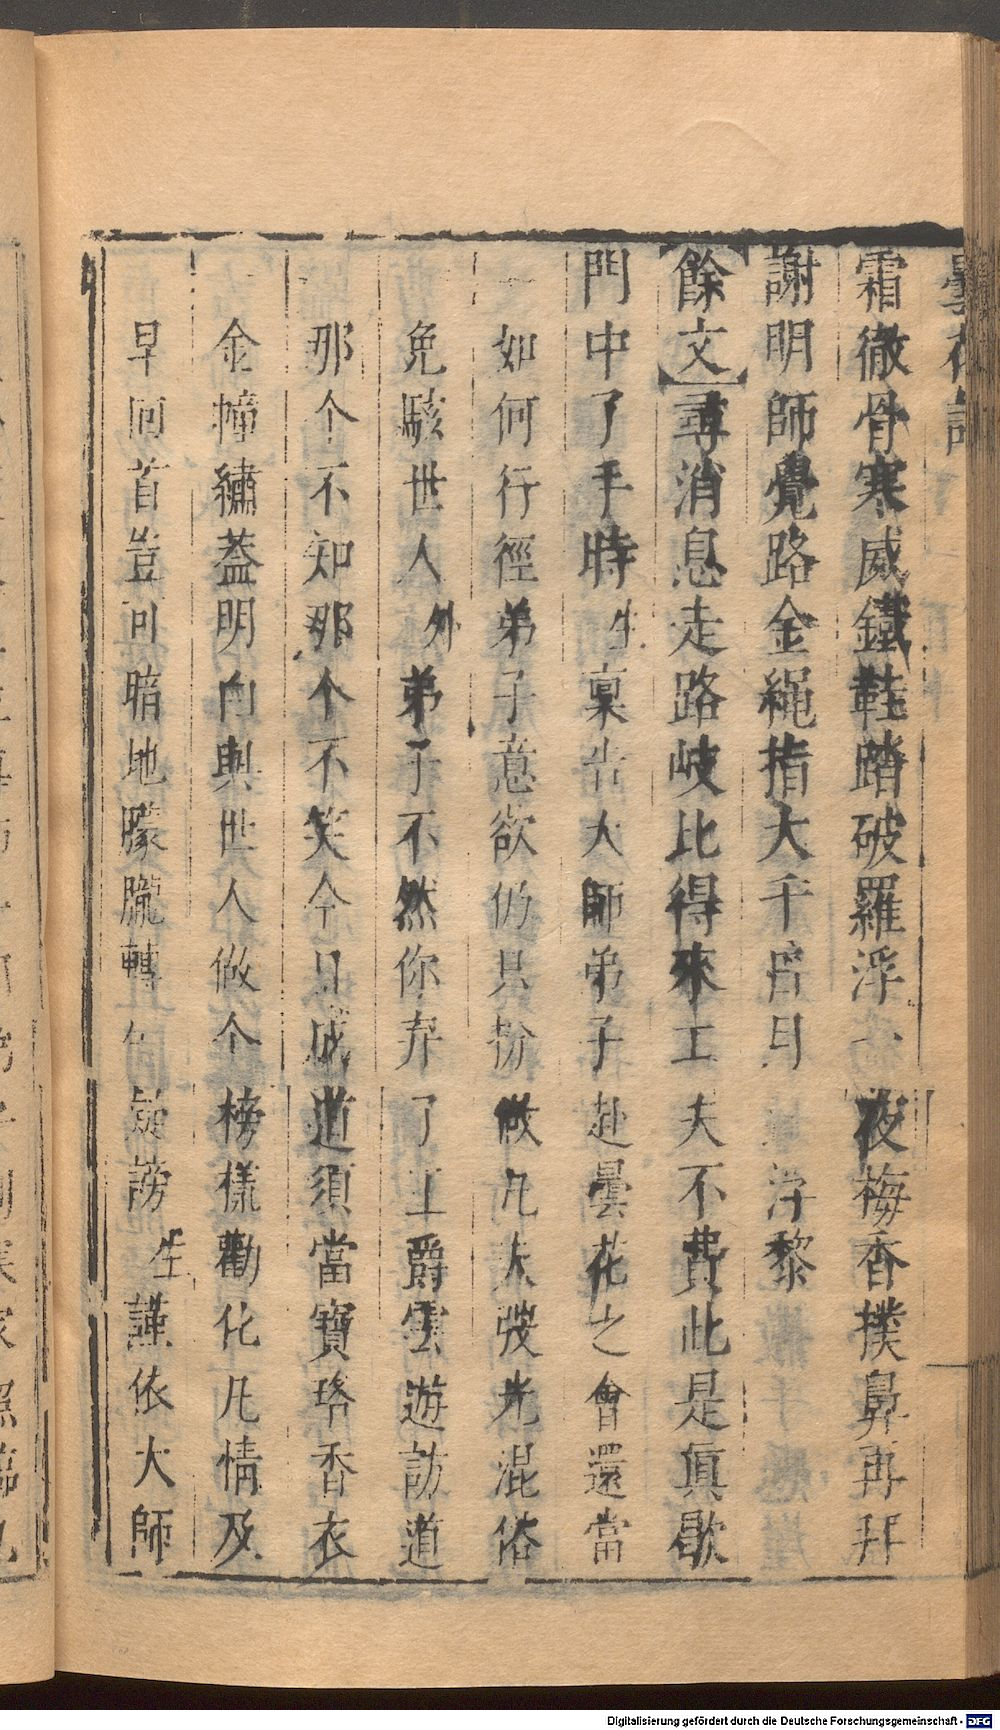 曇花記
霜徹骨寒威鐵鞋踏破羅浮一夜梅香撲鼻再拜
謝明師覺路金繩指大千皆
浮黎
【餘文】尋消息走路岐比得來工夫不費此是眞歇
門中了手時生稟告大師弟子赴曇花之會還當
如何行徑弟子意欲仍只扮做凡夫弢光混俗
免駭世人外弟子不然你弃了王爵雲遊訪道
那个不知那个不笑今旦成道須當寶珞香衣
金幢繡蓋明白與世人做个榜樣勸化凡情及
早回首豈可暗地朦朧轉
謗生謹依大師
Digitalisierung gefördert durch die Deutsche Forschungsgemeinschaft - DFG